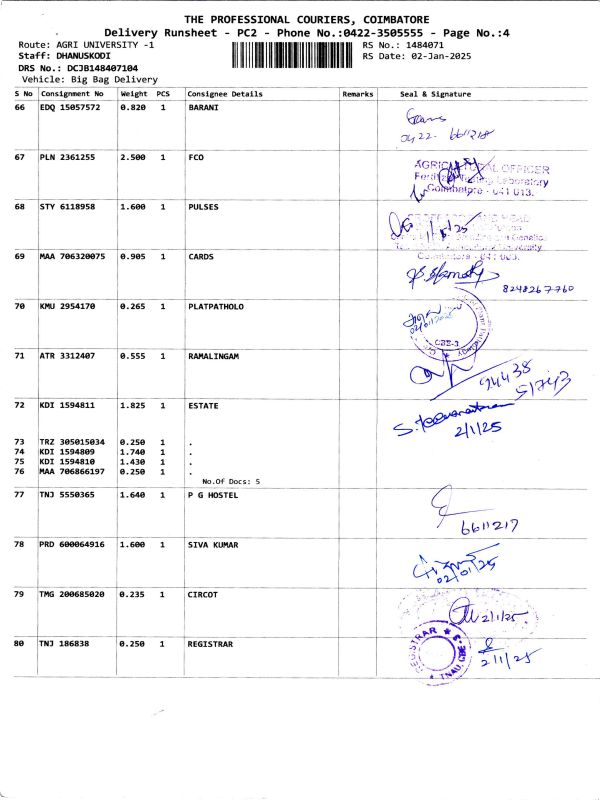 THE PROFESSIONAL COURIERS, COIMBATORE
Delivery Runsheet - PC2 - Phone No.:0422-3505555 - Page No.:4
Route: AGRI UNIVERSITY -1 RS No.: 1484071
Staff: DHANUSKODI RS Date: 02-Jan-2025
DRS No.: DCJB148407104
Vehicle: Big Bag Delivery
S No Consignment No Weight PCS Consignee Details Remarks Seal & Signature
66 EDQ 15057572 0.820 1 BARANI
0422- 6611218
67 PLN 2361255 2.500 1 FCO
AGRICULTURAL OFFICER
Laboratory
Coimbatore - 641 013.
68 STY 6118958 1.600 1 PULSES
PROFESSOR AND HEAD
Genetics
University
Coimbatore - 641 003.
69 MAA 706320075 0.905 1 CARDS
8248267760
70 KMU 2954170 0.265 1 PLATPATHOLO
02/01/2025
CBE-3
71 ATR 3312407 0.555 1 RAMALINGAM
94438
51743
72 KDI 1594811 1.825 1 ESTATE
2/1/25
73 TRZ 305015034 0.250 1 .
74 KDI 1594809 1.740 1 .
75 KDI 1594810 1.430 1 .
76 MAA 706866197 0.250 1 .
No.Of Docs: 5
77 TNJ 5550365 1.640 1 P G HOSTEL
6611217
78 PRD 600064916 1.600 1 SIVA KUMAR
02/01/25
79 TMG 200685020 0.235 1 CIRCOT
2/1/25
80 TNJ 186838 0.250 1 REGISTRAR
REGISTRAR
TNAU, CBE-3
2/1/25